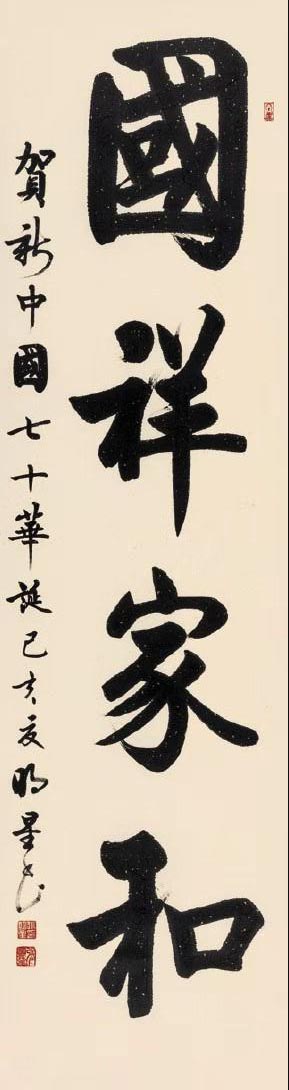 國祥家和
賀新中國七十華誕己亥夏明星书